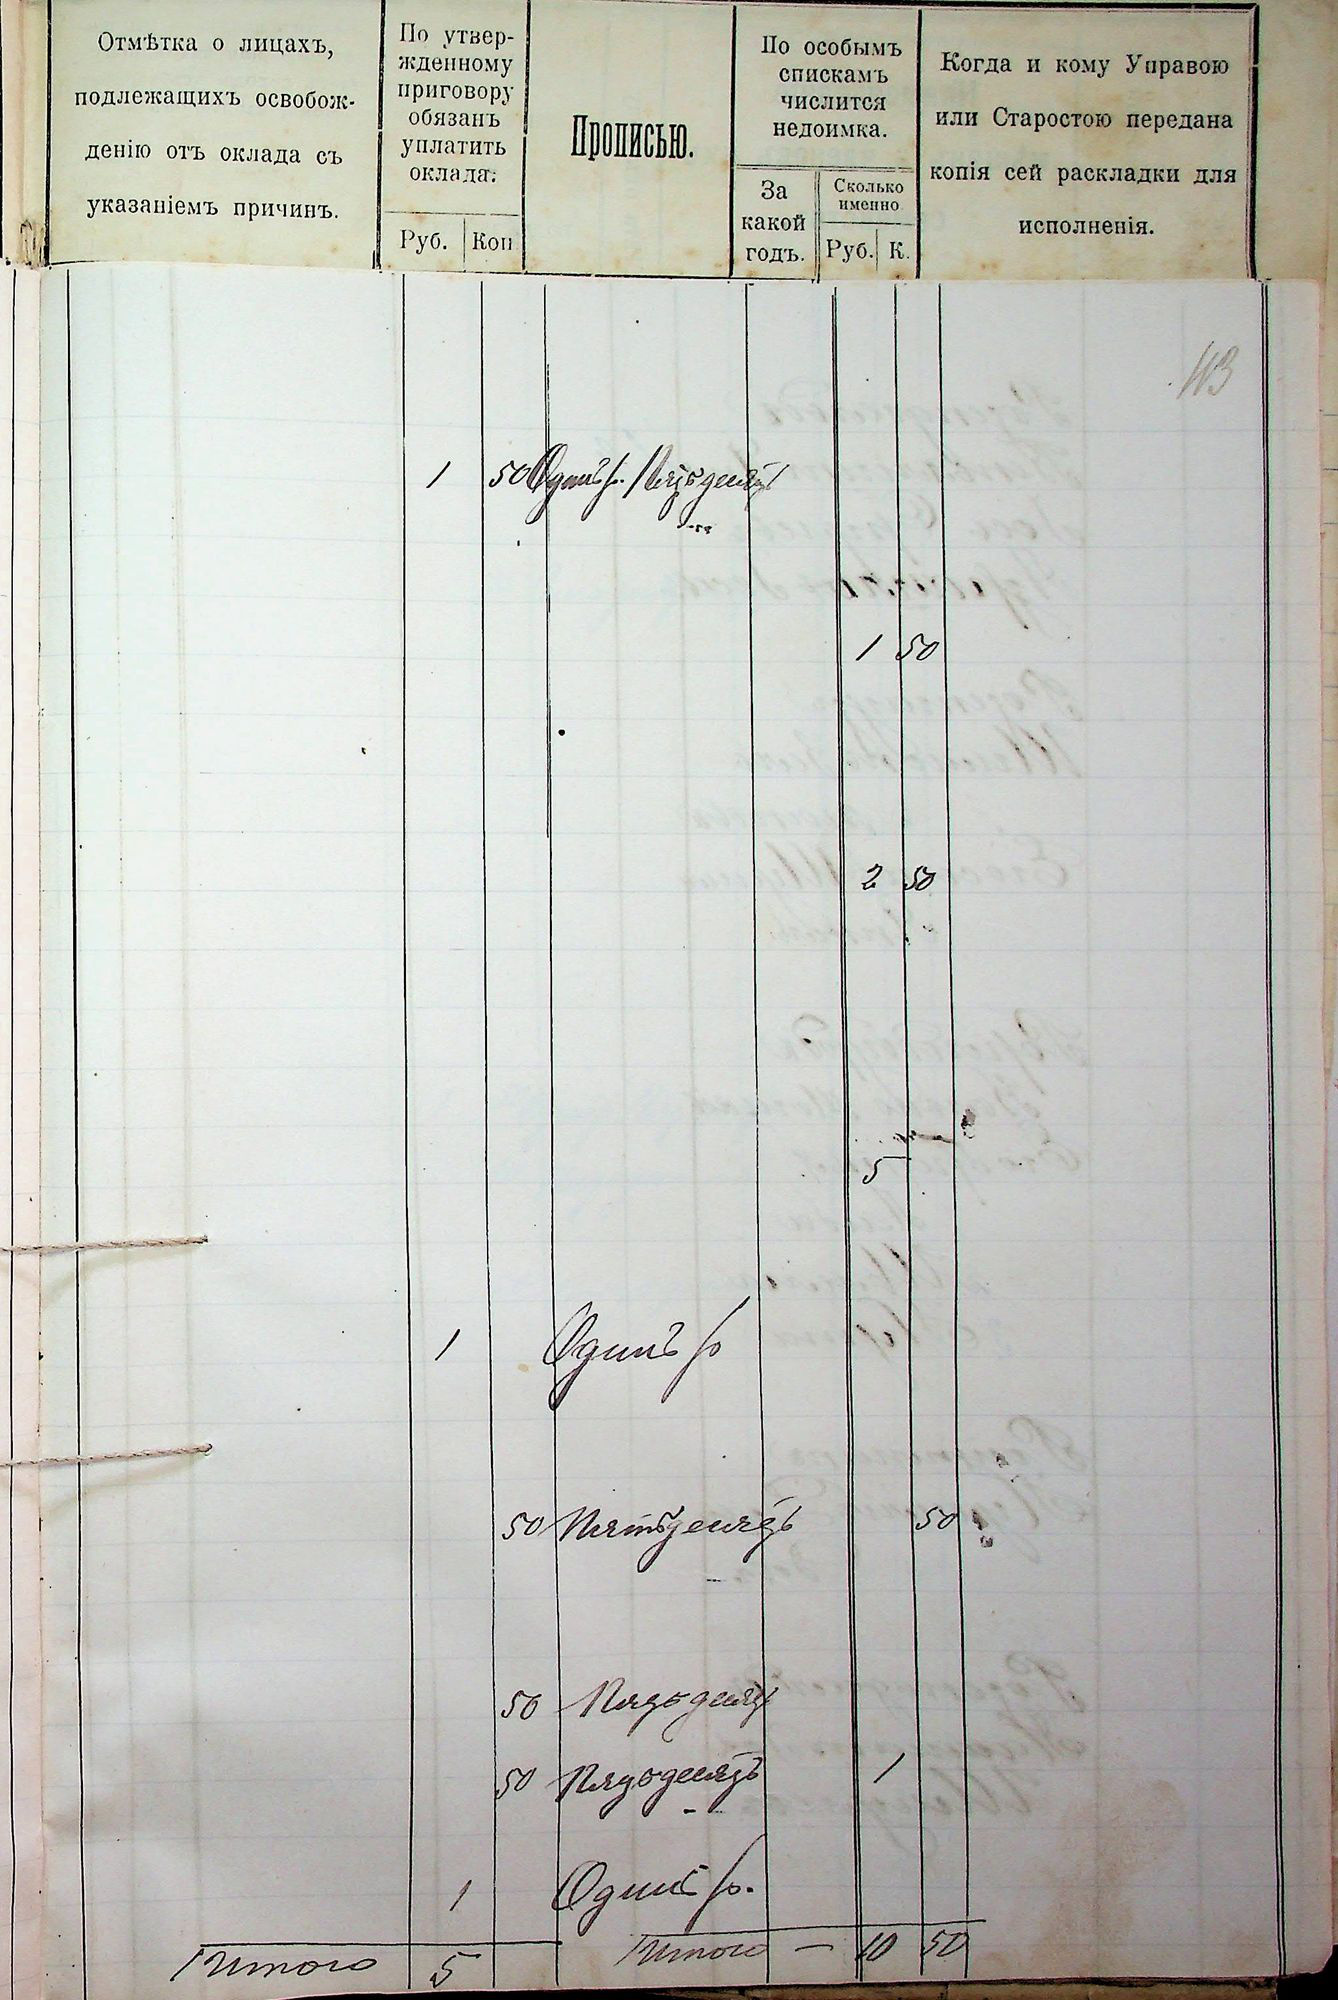 Отмѣтка о лицахъ,
подлежащихъ освобож-
денію отъ оклада съ
указаніемъ причинъ.
По утвер-
жденному
приговору
обязанъ
уплатить
оклада:
Руб. Коп
Прописью.
По особымъ
спискамъ
числится
недоимка.
За
какой
годъ.
Сколько
именно
Руб. К.
Когда и кому Управою
или Старостою передана
копія сей раскладки для
исполненія.
113
1 50 Одинъ р. Пятьдесятъ
1 50
2 50
5
1 Одинъ р
50 Пятьдесятъ 50
50 Пятьдесят
50 Пятьдесятъ 1
1 Одинъ р.
Итого 5 Итого — 10 50